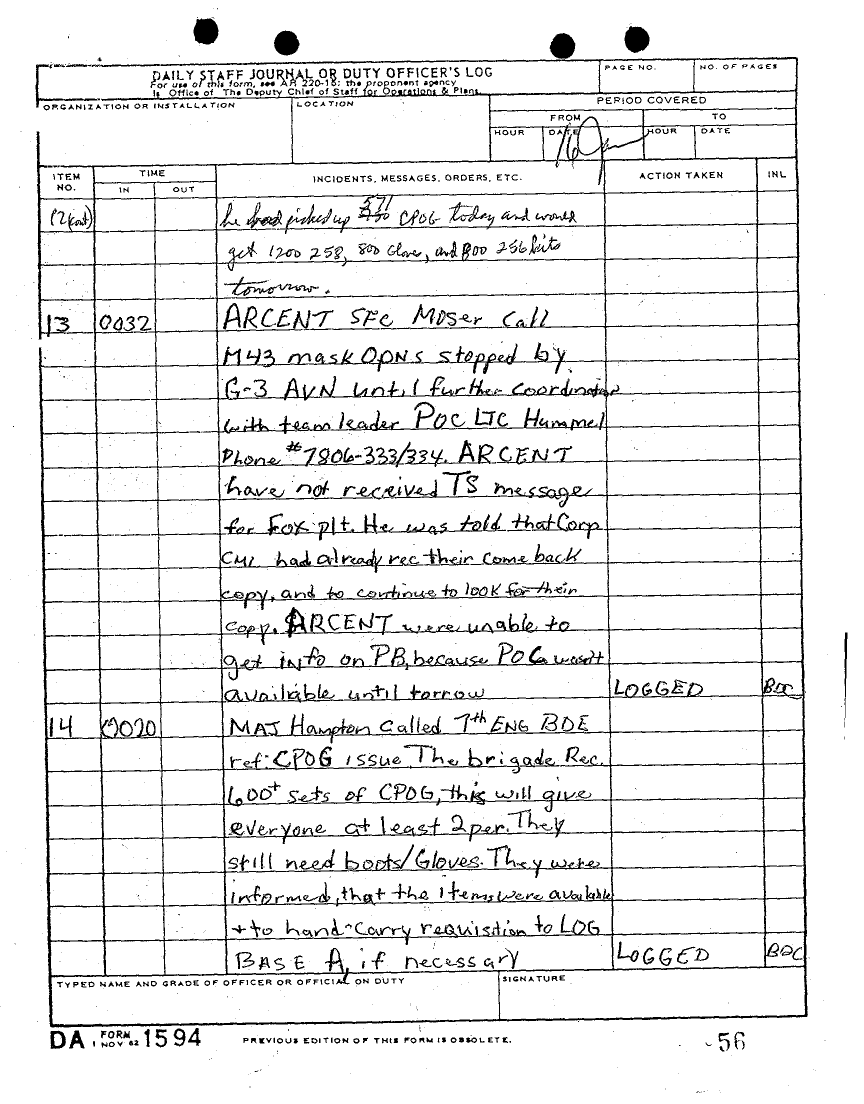 DAILY STAFF JOURNAL OR DUTY OFFICER'S LOG
For use of this form, see AR 220-15; the proponent agency
is Office of The Deputy Chief of Staff for Operations & Plans.
PAGE NO.
NO. OF PAGES
ORGANIZATION OR INSTALLATION
LOCATION
PERIOD COVERED
FROM
TO
HOUR
DATE
HOUR
DATE
16 Jan
ITEM NO.
TIME
IN
OUT
INCIDENTS, MESSAGES, ORDERS, ETC.
ACTION TAKEN
INL
12(cont) he had picked up 571 CPOG today and would
get 1200 258, 800 Gloves, and 800 256 kits
tomorrow.
13 0032 ARCENT SFC Moser Call
M43 mask OPNS stopped by
G-3 AVN until further coordination
with team leader POC LTC Hummel
Phone # 7806-333/334. ARCENT
have not received TS message
for Fox plt. He was told that Corp
CML had already rec their come back
copy, and to continue to look for their
copy. ARCENT were unable to
get info on PB, because POC wasn't
available until torrow LOGGED BDC
14 0020 MAJ Hampton Called 7th ENG BDE
ref: CPOG issue. The brigade Rec.
600+ sets of CPOG, this will give
everyone at least 2 per. They
still need boots/Gloves. They were
informed, that the items were available
+ to hand-carry requisition to LOG
BASE A, if necessary LOGGED BDC
TYPED NAME AND GRADE OF OFFICER OR OFFICIAL ON DUTY
SIGNATURE
DA FORM 1 NOV 62 1594
PREVIOUS EDITION OF THIS FORM IS OBSOLETE.
-56